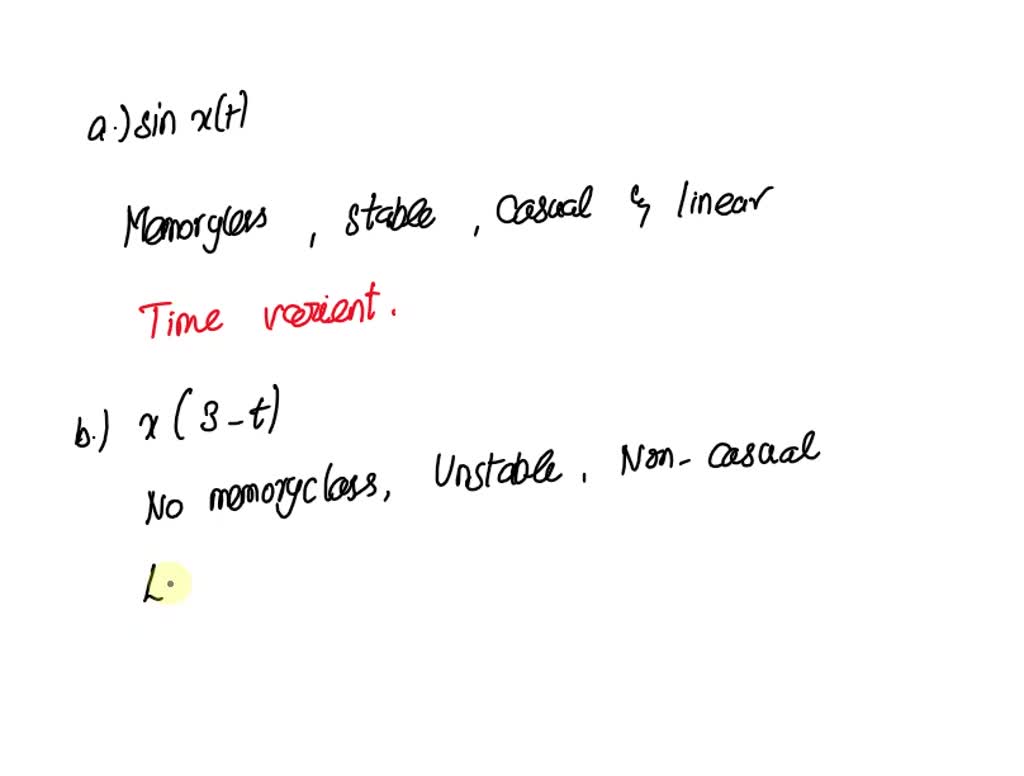 a.) sin x(t)
Memoryless , stable , Casual & linear
Time varient .
b.) x ( 3 - t )
No memorycless, Unstable , Non - casual
L